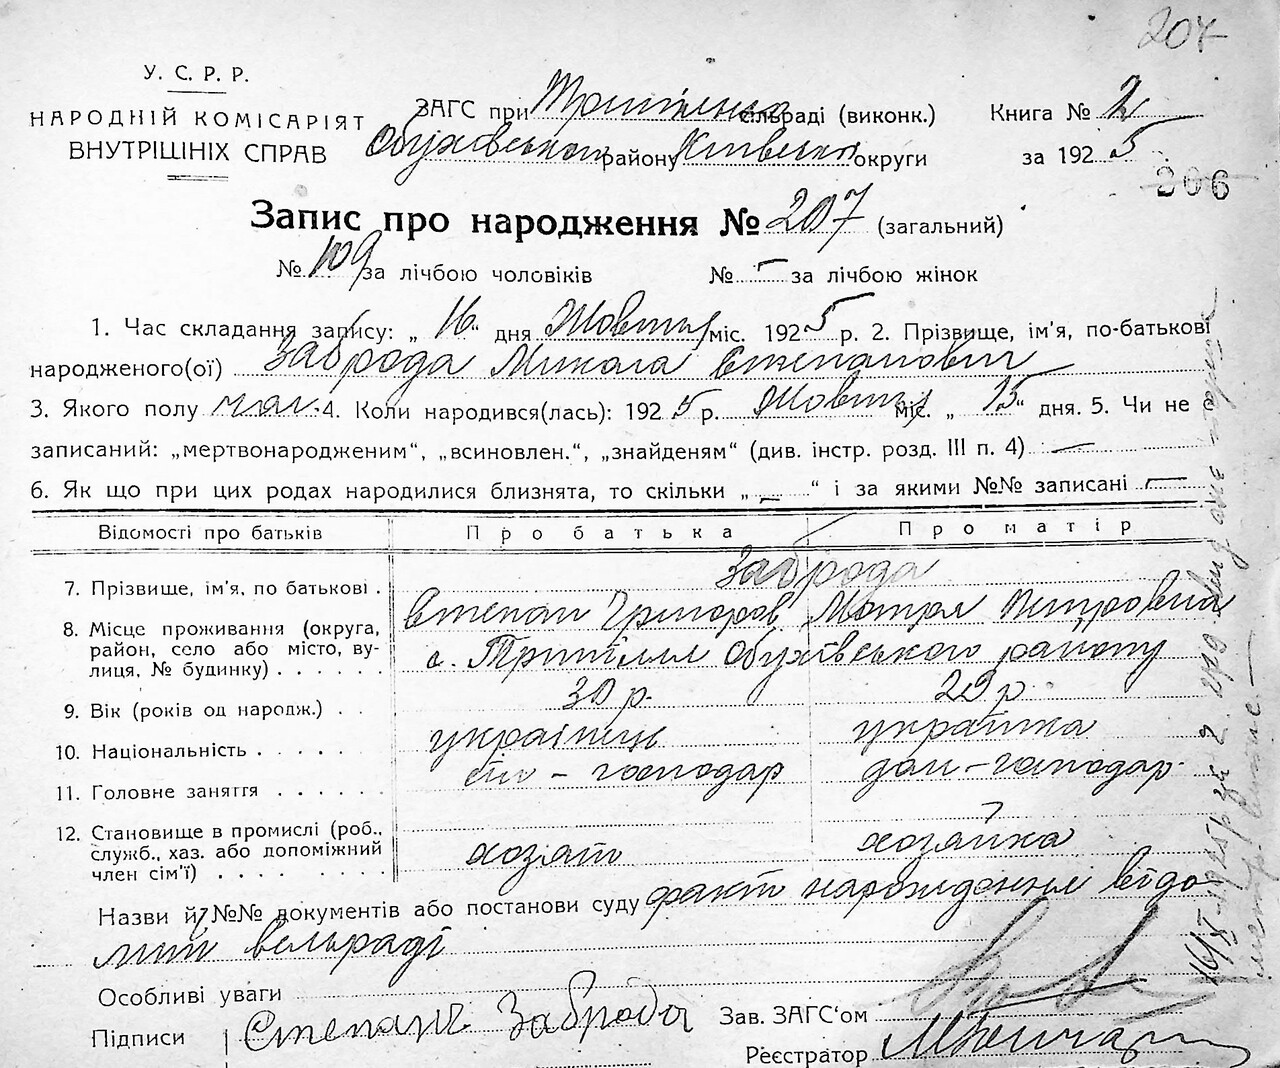 207
У. С. Р. Р.
НАРОДНІЙ КОМІСАРІЯТ
ВНУТРІШНІХ СПРАВ
ЗАГС при Трипільській сільраді (виконк.)
Обухівського району Київської округи
Книга № 2
за 1925
206
Запис про народження № 207 (загальний)
№ 109 за лічбою чоловіків № — за лічбою жінок
1. Час складання запису: „ 16 “ дня Жовтня міс. 1925 р. 2. Прізвище, ім'я, по-батькові
народженого(ої) Заброда Микола Степанович
3. Якого полу чол. 4. Коли народився(лась): 1925 р. Жовтня міс. „ 15 “ дня. 5. Чи не
записаний: „мертвонародженим“, „всиновлен.“, „знайденям“ (див. інстр. розд. III п. 4) —
6. Як що при цих родах народилися близнята, то скільки „ — “ і за якими №№ записані —
Відомості про батьків Про батька Про матір
Заброда
7. Прізвище, ім'я, по батькові .
Степан Григоров. Мотря Петровна
8. Місце проживання (округа, район, село або місто, вулиця, № будинку)
с. Трипілля Обухівського району
9. Вік (років од народж.) . . 30 р. 29 р.
10. Національність українець українка
11. Головне заняття сіл – господар дом – господар.
12. Становище в промислі (роб., служб., хаз. або допоміжний член сім'ї) хозяїн хозяйка
Назви й №№ документів або постанови суду факт нарождення відо
мий сельраді
Особливі уваги
Підписи Степан Заброда
Зав. ЗАГС‘ом
Реєстратор